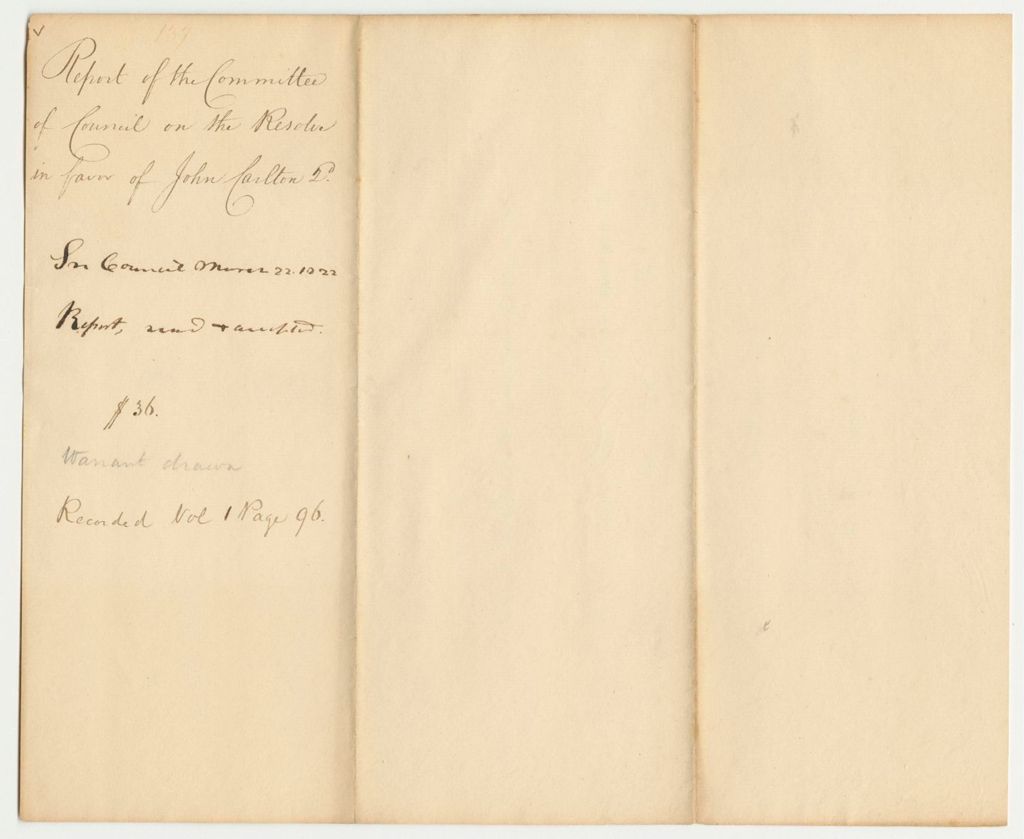 137
Report of the Committee
of Council on the Resolve
in favor of John Carlton 2d.
In Council March 22. 1822
Report, read + accepted.
$36.
Warrant drawn
Recorded Vol 1 Page 96.